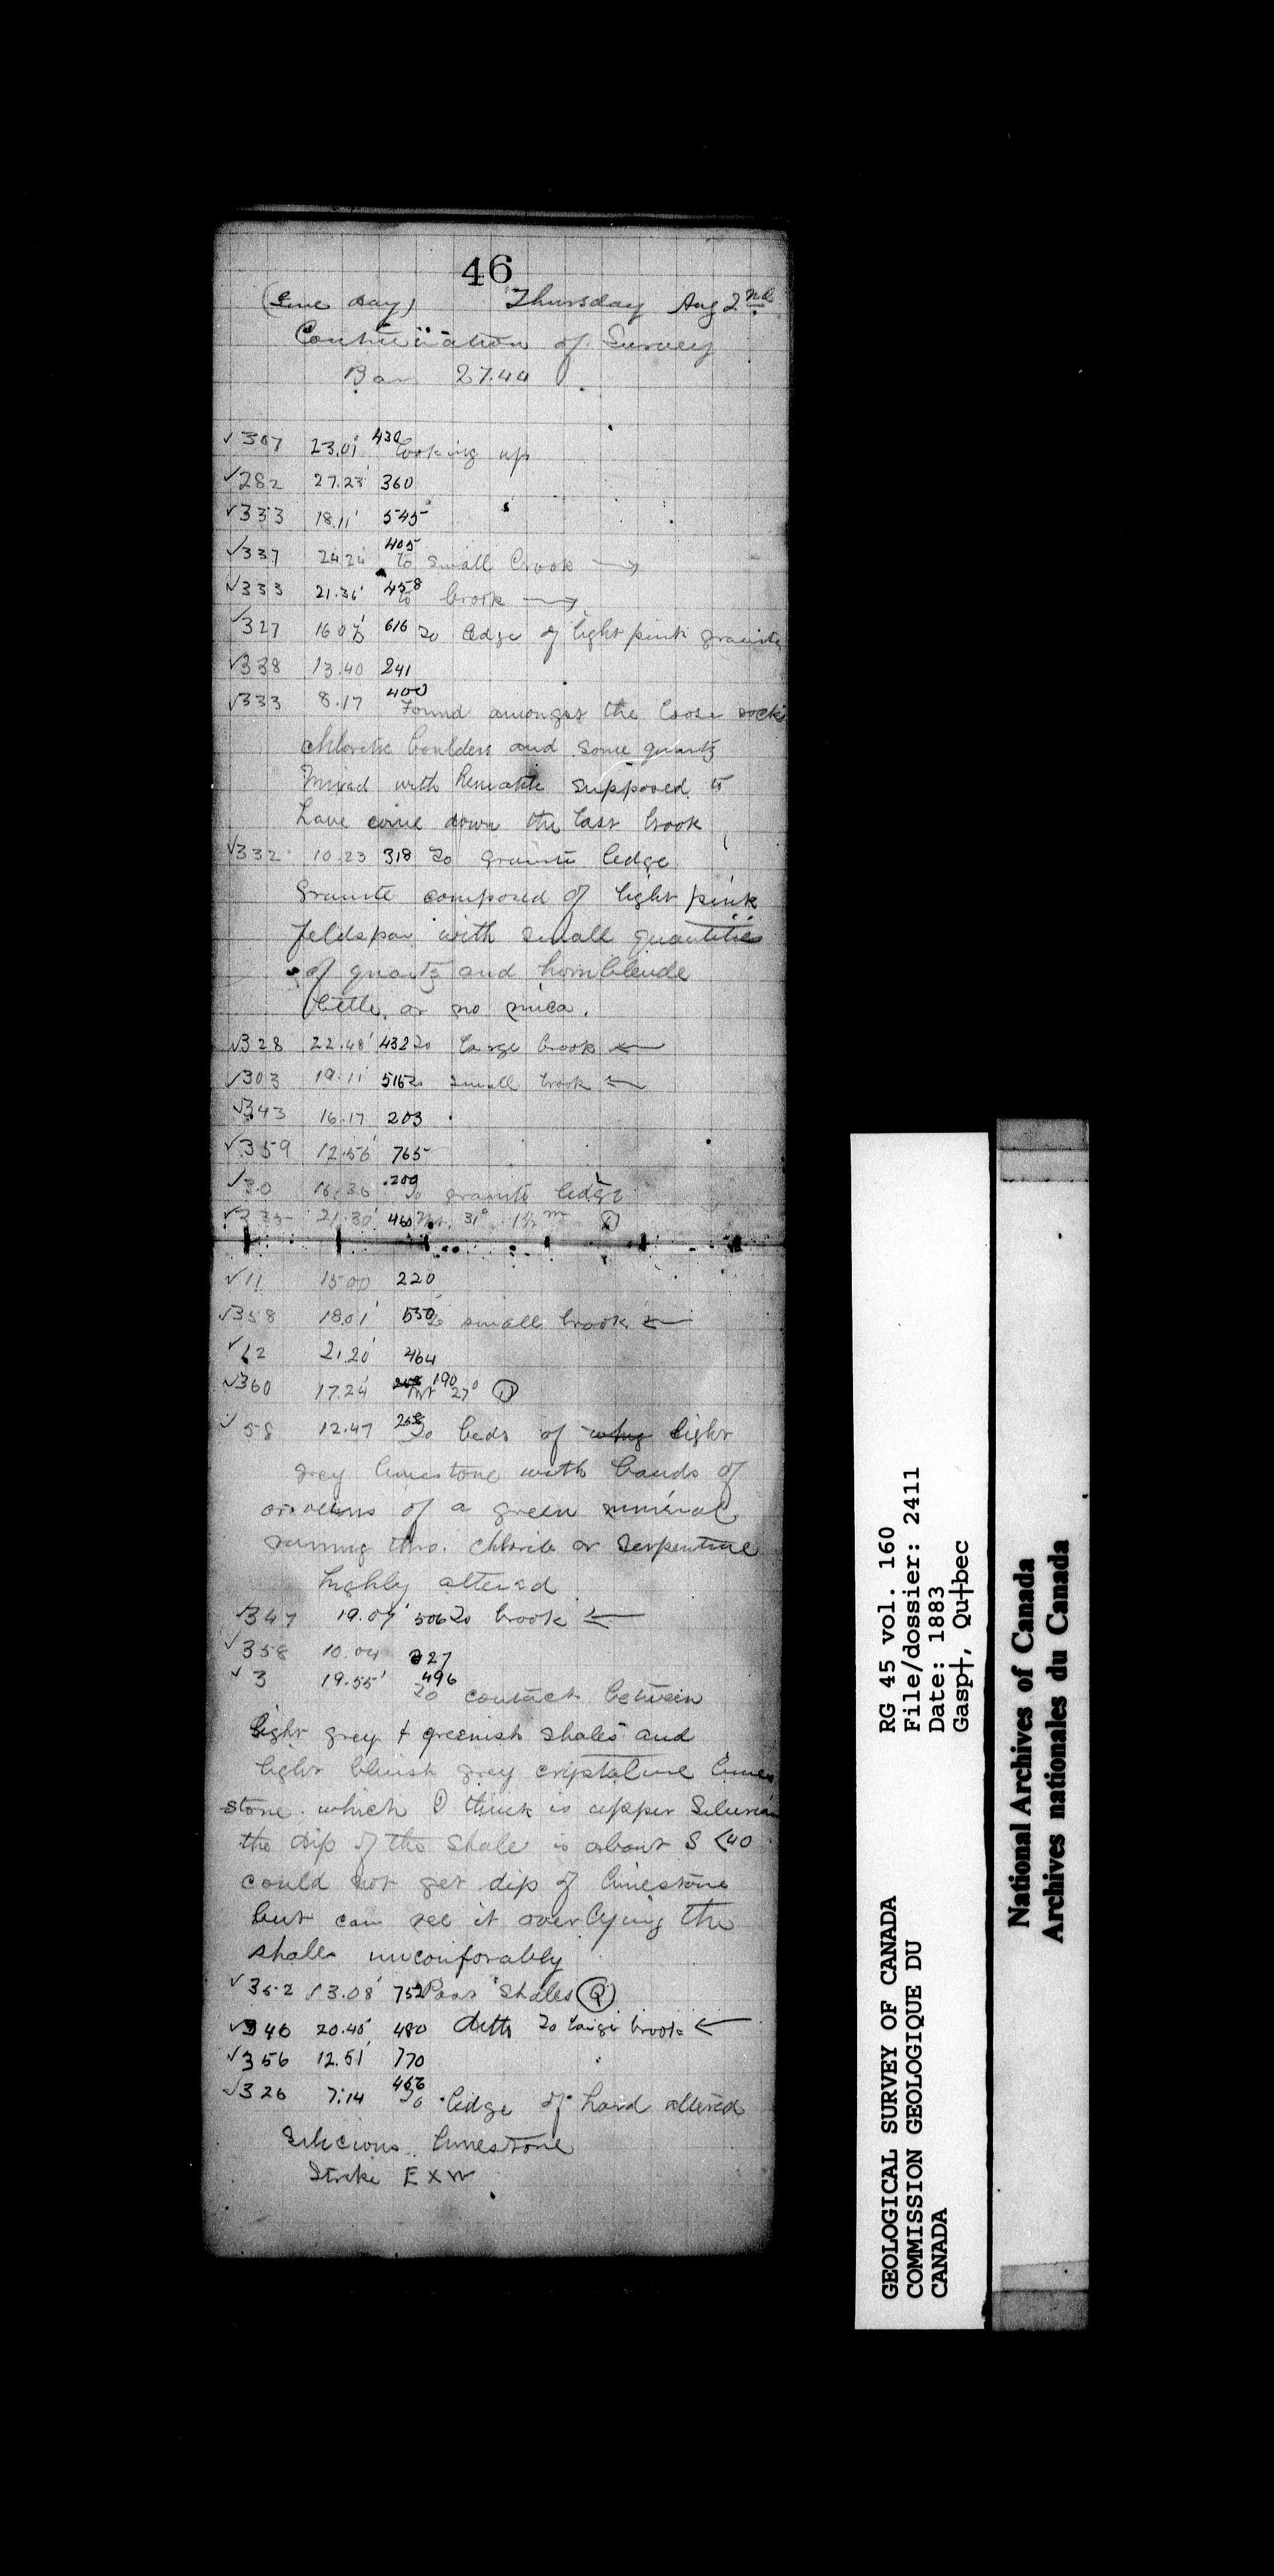 46
(Fine day) Thursday Aug 2nd
Continuation of Survey
Bar 27.44
√307 23.01' 430 looking up
√282 27.23' 360
√333 18.11' 545
√337 24.24' 405 to small brook →
√333 21.36' 458 to brook →
√327 16.03' 616 To Edge of light pink granite
√338 13.40 241
√333 8.17 400 Found amongst the loose rocks
chloretic boulders and some quartz
mixed with hematite supposed to
have come down the last brook
√332 10.23 318 To granite ledge
Granite composed of light pink
feldspar with small quantities
of quartz and hornblende
little or no mica.
√328 22.48' 432 To large brook ←
√303 19.11' 515 To small brook ←
√343 16.17 203
√359 12.56' 765
√30 16.36' 209 To granite ledge
√335 21.30' 460 31° 1½ m
√11 15.00 220
√358 18.01' 530 To small brook ←
√12 21.20' 464
√360 17.24' 190 27°
√58 12.47 258 To beds of light
grey limestone with bands of
or veins of a green mineral
running thro. chlorite or Serpentine
highly altered
√347 19.07' 506 To brook ←
√358 10.04 227
√3 19.55' 496 To contact between
light grey + greenish shales and
light bluish grey criptaline lime
stone which I think is upper Silurian
the dip of the shale is about S <40
could not get dip of limestone
but can see it overlying the
shale unconforably
√352 13.08' 752 Pass Shales Q
√346 20.40' 480 ditto To large brook ←
√356 12.51' 770
√326 7.14 456 To ledge of hard altered
Silicious limestone
Strike E x W
RG 45 vol. 160
File/dossier: 2411
Date: 1883
Gasp†, Qu†bec
GEOLOGICAL SURVEY OF CANADA
COMMISSION GEOLOGIQUE DU
CANADA
National Archives of Canada
Archives nationales du Canada